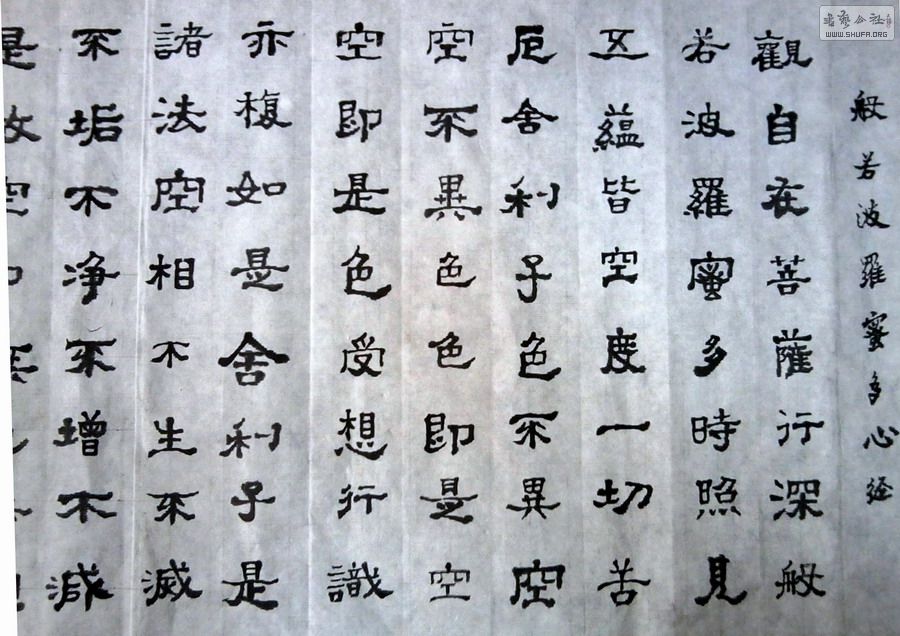 書藝公社
WWW.SHUFA.ORG
般若波羅蜜多心经
觀自在菩薩行深般
若波羅蜜多時照見
五蘊皆空度一切苦
厄舍利子色不異空
空不異色色即是空
空即是色受想行識
亦複如是舍利子是
諸法空相不生不滅
不垢不净不增不減
是故空